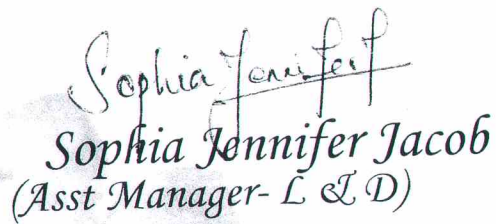 Sophia Jennifer
Sophia Jennifer Jacob
(Asst Manager- L & D)